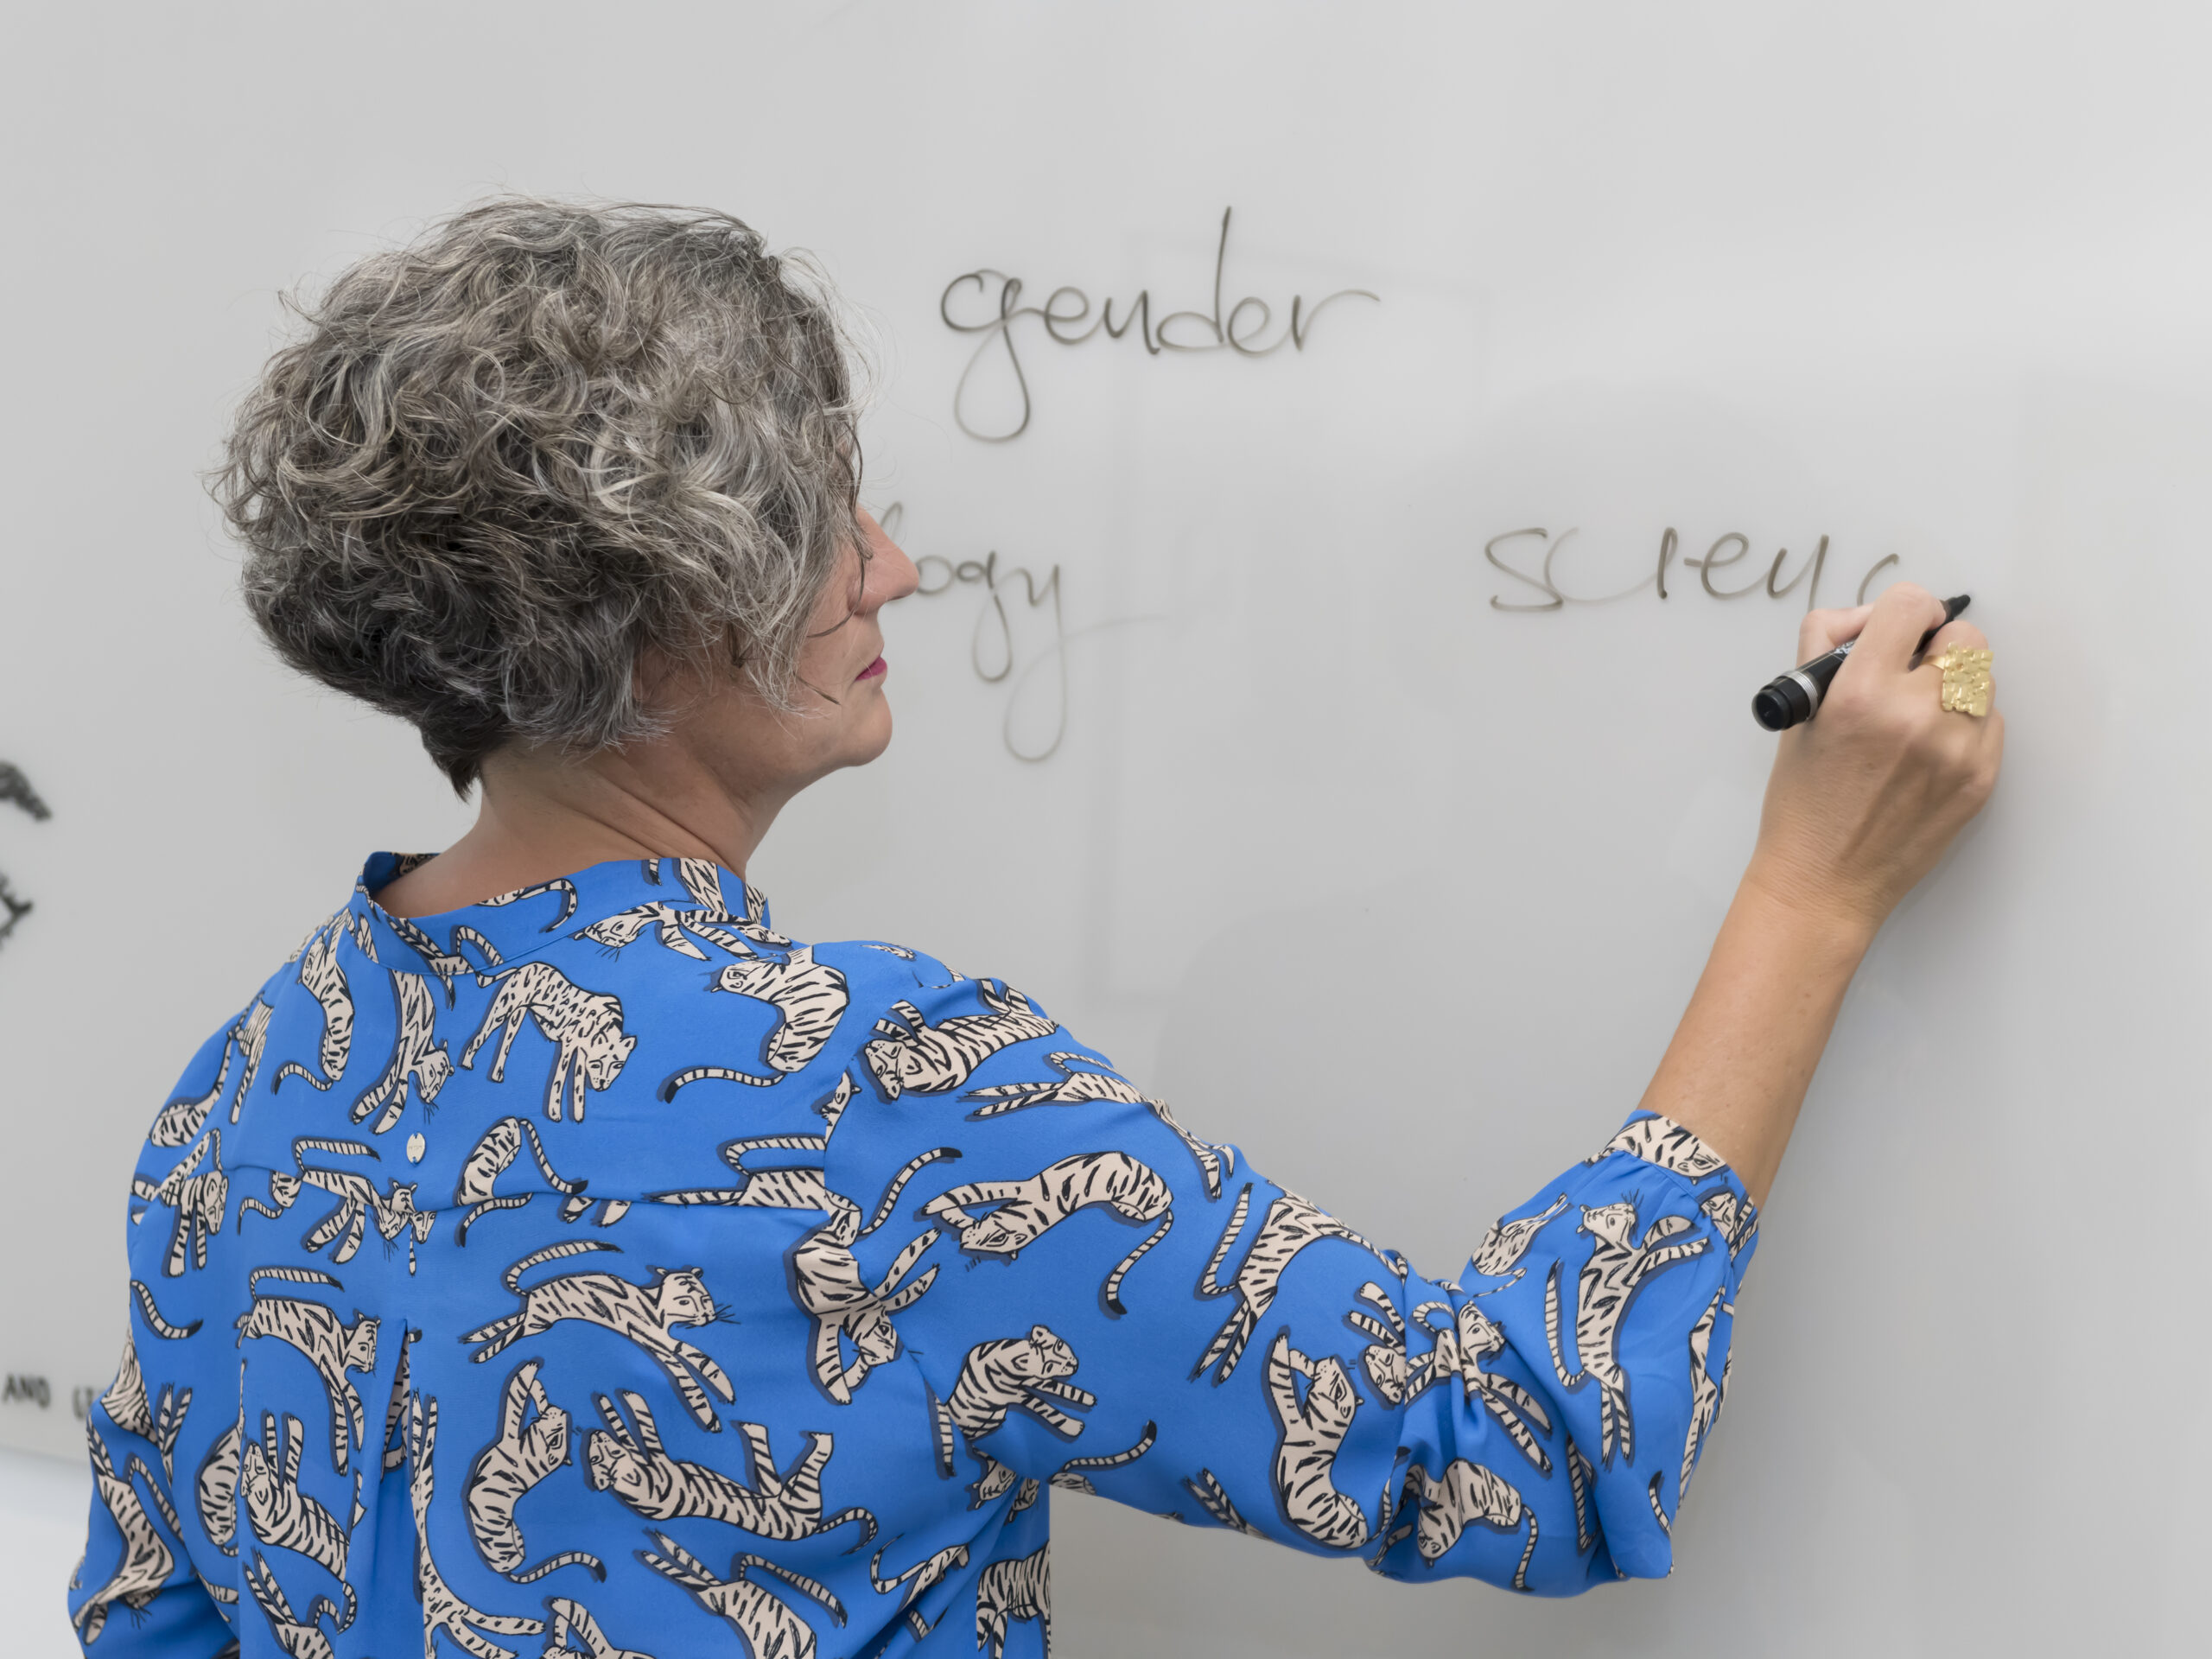 gender
logy
scienc
AND